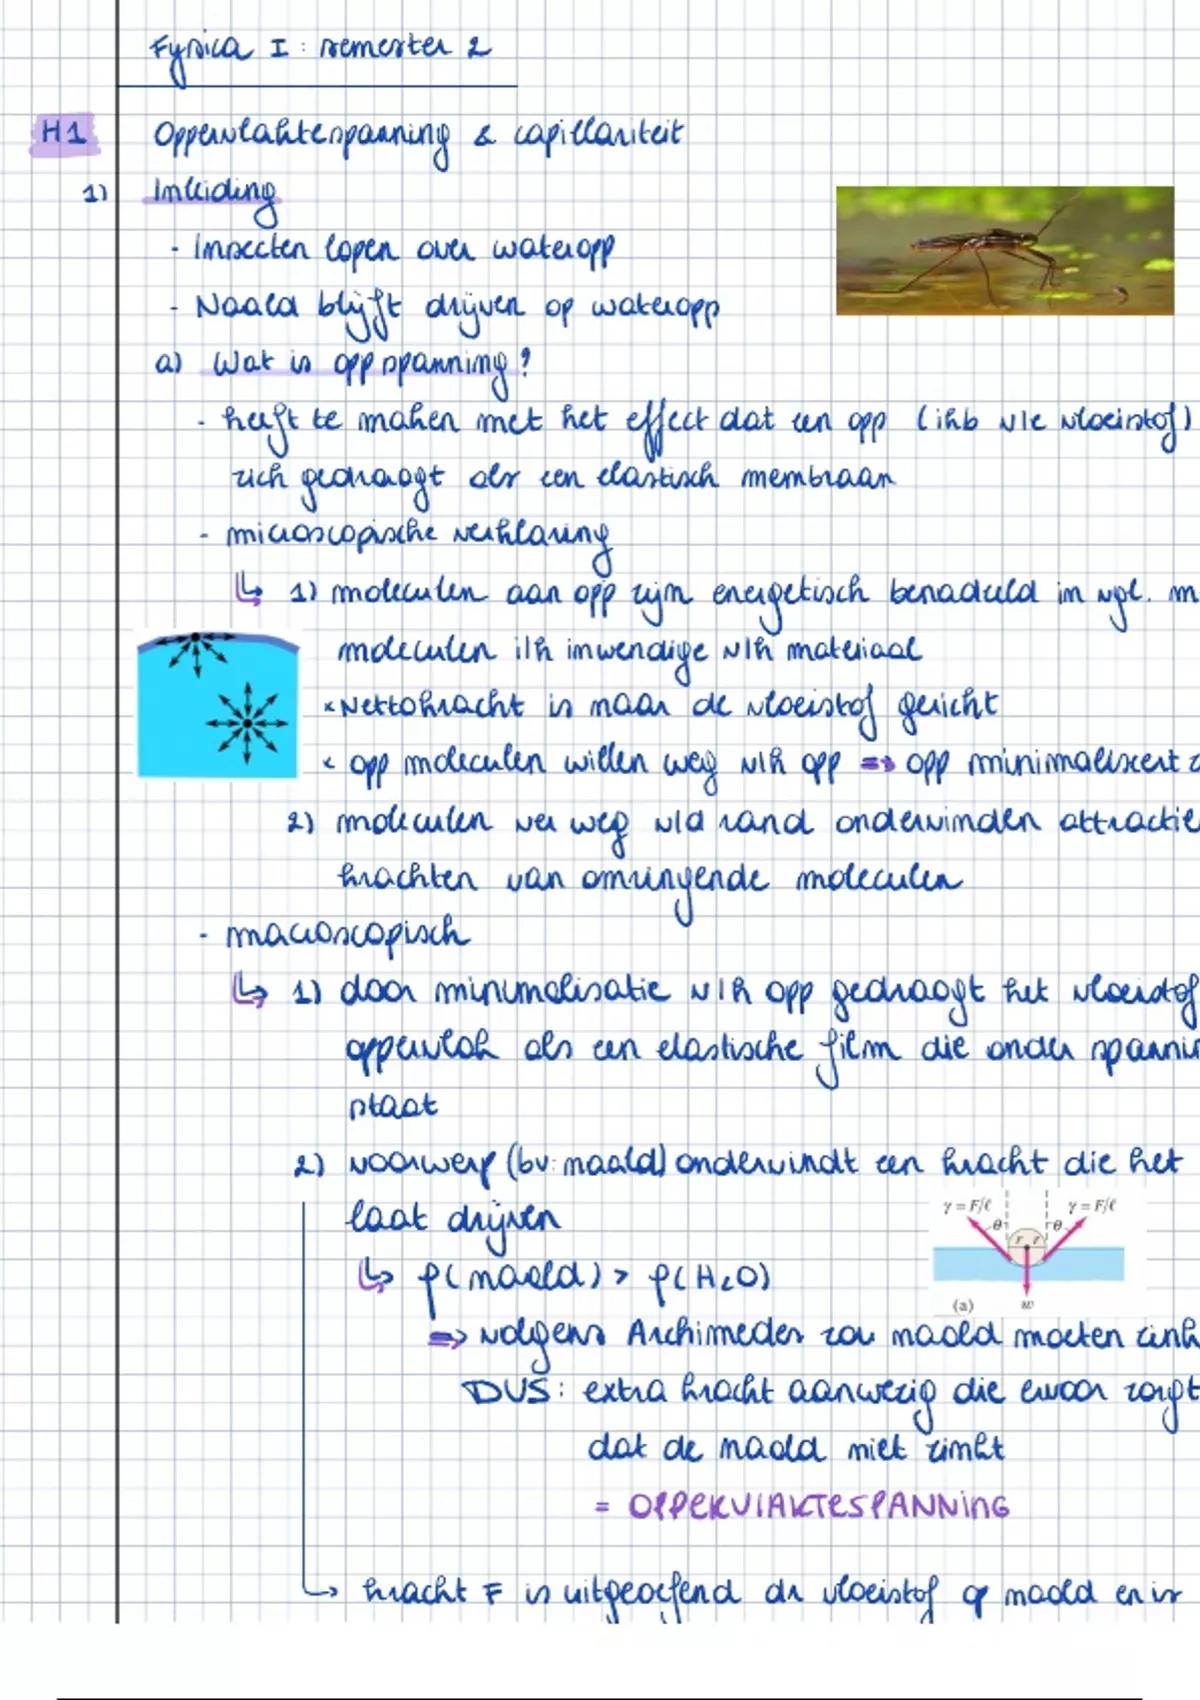 Fysica I : semester 2
H1 Oppervlaktespanning & capillariteit
1) Inleiding
- Insecten lopen over wateropp
- Naald blijft drijven op wateropp
a) Wat is opp spanning?
- heeft te maken met het effect dat een opp (ihb v/e vloeistof)
zich gedraagt als een elastisch membraan
- microscopische verklaring
↳ 1) moleculen aan opp zijn energetisch benadeeld in vgl. m
moleculen i/h inwendige v/h materiaal
× Nettokracht is naar de vloeistof gericht
× opp moleculen willen weg v/h opp => opp minimaliseert z
2) moleculen ver weg v/d rand ondervinden attractie
krachten van omringende moleculen
- macroscopisch
↳ 1) door minimalisatie v/h opp gedraagt het vloeistof
oppervlak als een elastische film die onder spannin
staat
2) voorwerp (bv: naald) ondervindt een kracht die het
laat drijven
γ = F/ℓ γ = F/ℓ
θ θ
r r
(a) w
↳ ρ(naald) > ρ(H₂O)
=> volgens Archimedes zou naald moeten zink
DUS: extra kracht aanwezig die ervoor zorgt
dat de naald niet zinkt
= OPPERVlAKTESPANNiNG
↳ kracht F is uitgeoefend dr vloeistof op naald en is